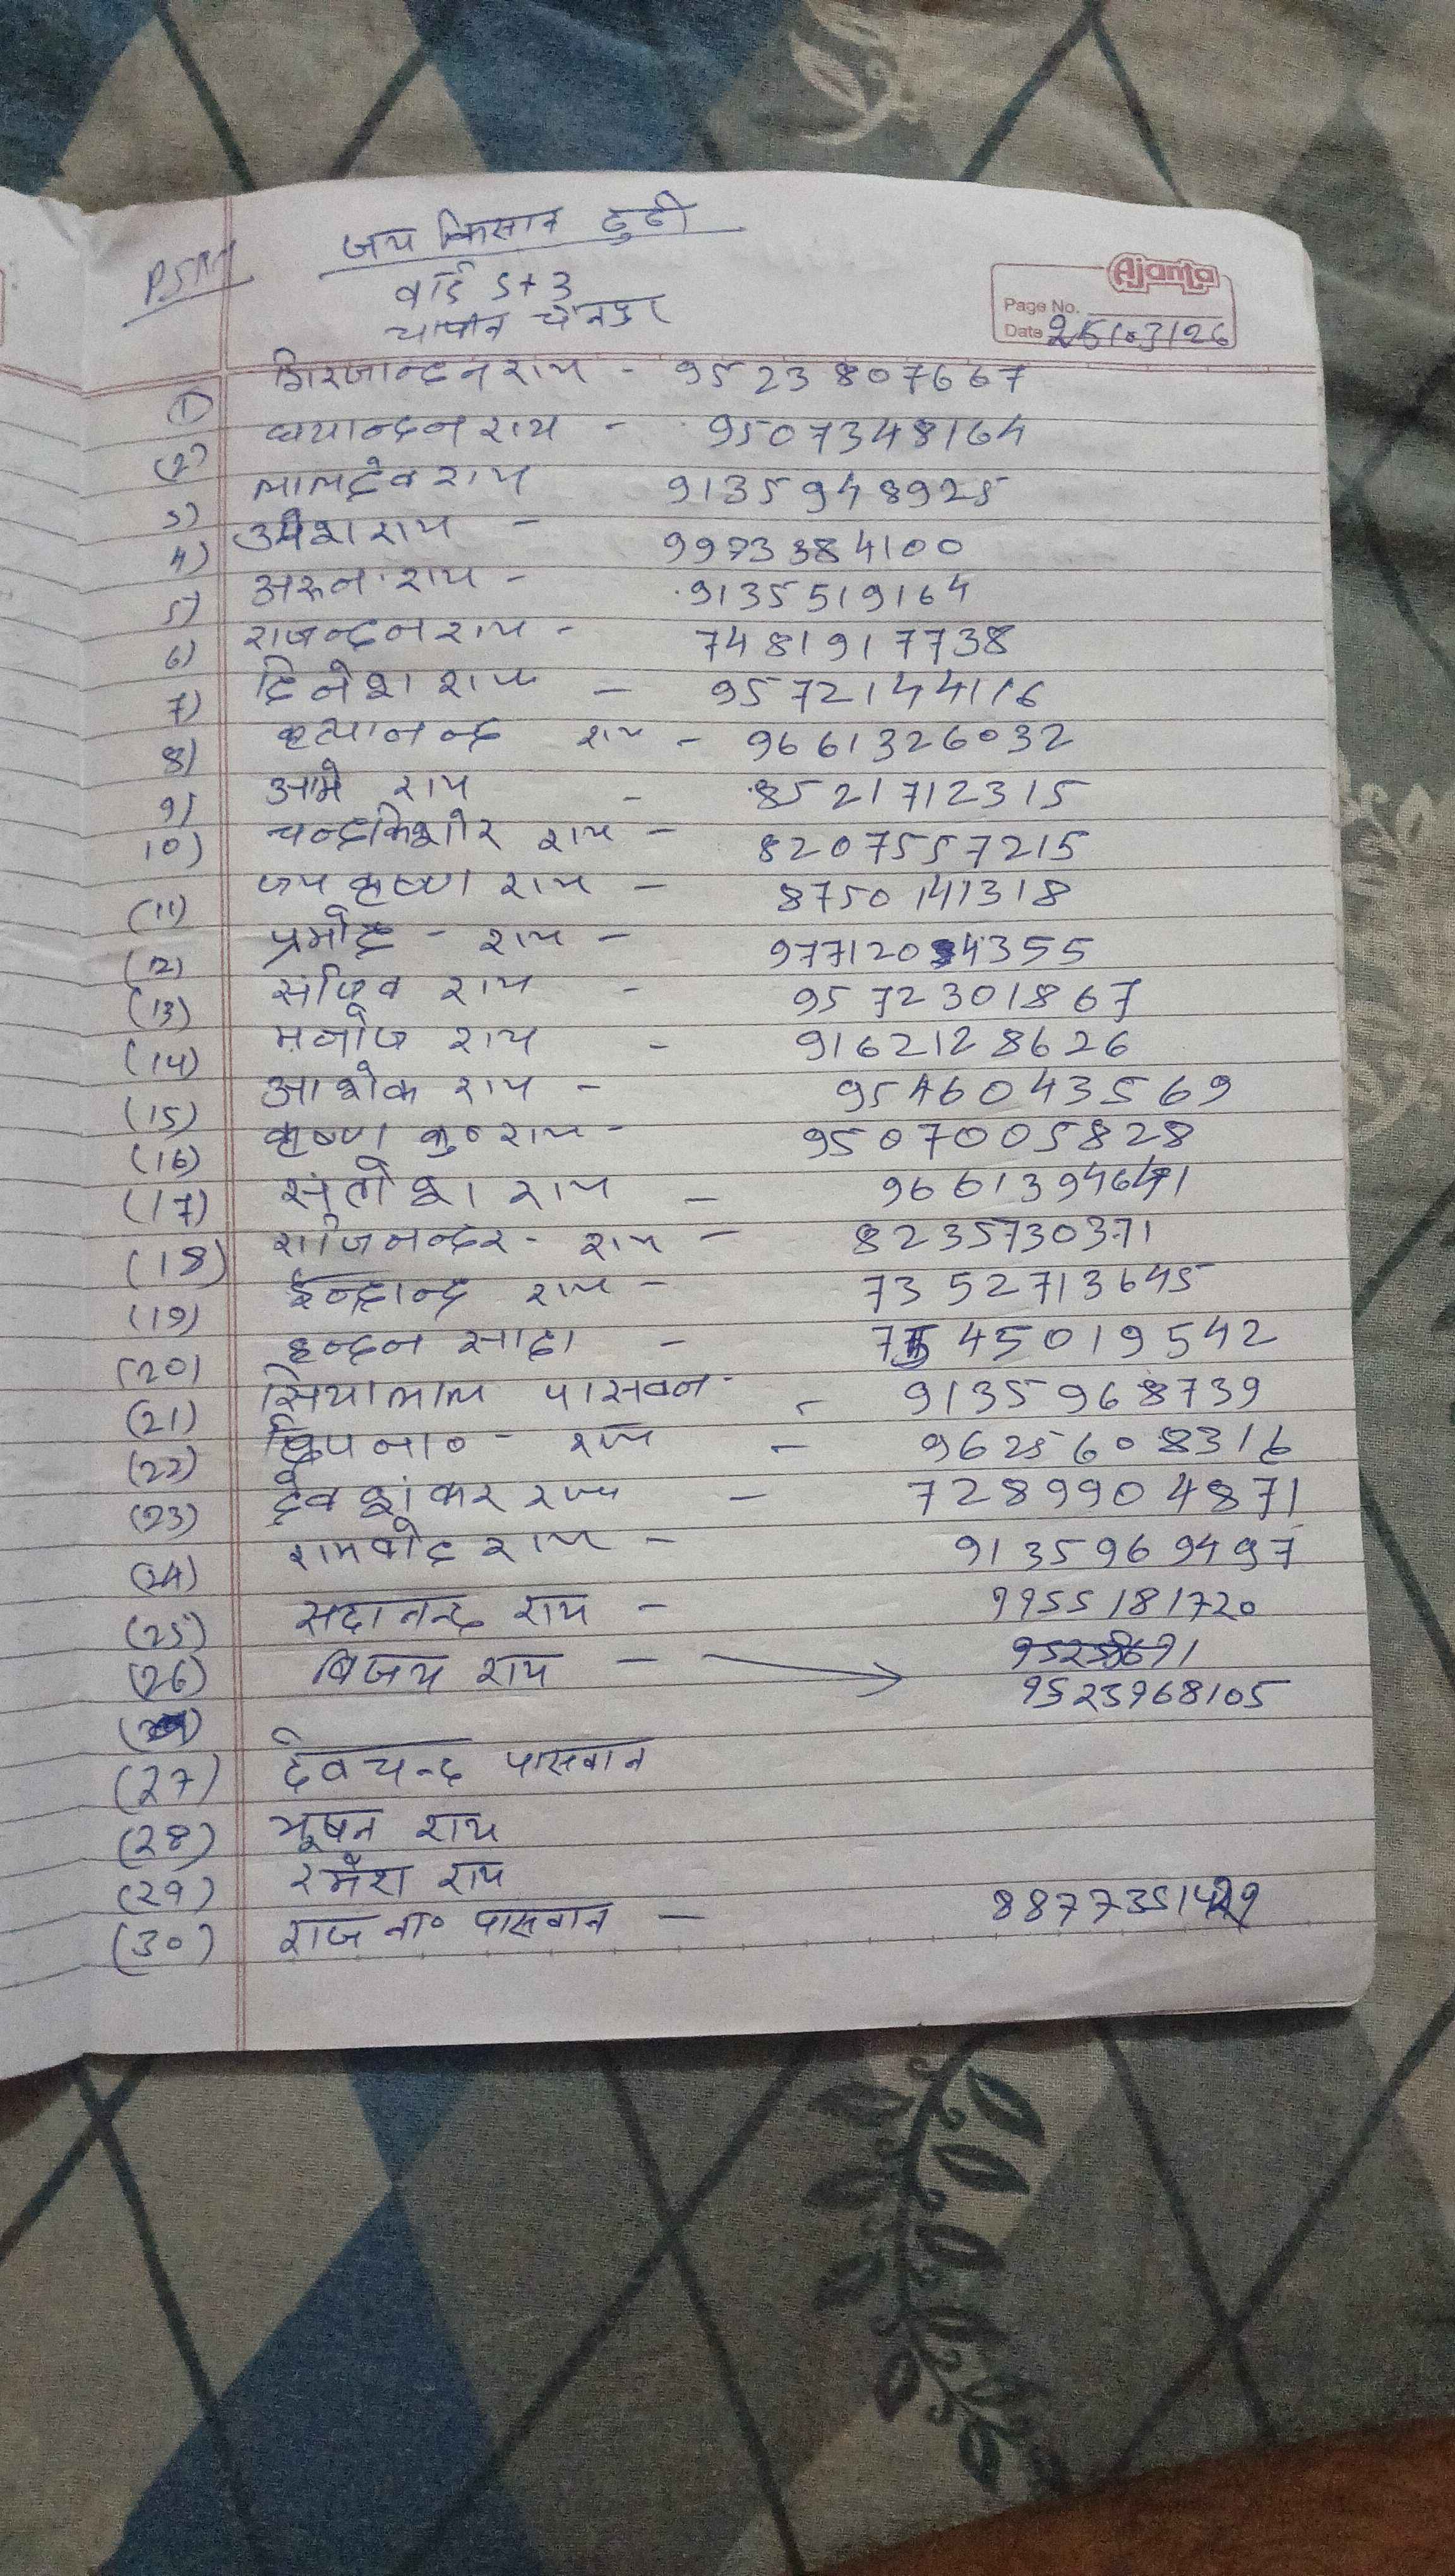 PSM
जय किसान टुटी
वार्ड 5+3
Ajanta
Page No.
Date 25/03/26
① गिरजानन्दन राय - 9523807667
(2) राय - 9507348164
3) लालदेव राय 9135948925
4) उमेश राय - 9973384100
5) अरुन राय - 9135519164
6) राजनन्दन राय - 7481917738
7) दिनेश राय - 9572144116
8) कृत्यानन्द राय - 9661326032
9) राय - 8521712315
10) चन्द्रकिशोर राय - 8207557215
(11) जय कृष्ण राय - 8750141318
(12) प्रमोद - राय -
(13) राय - 9572301867
(14) मनोज राय - 9162128626
(15) अशोक राय - 9546043569
(16) कृष्ण कु० राय - 9507005828
(17) संतोश राय -
(18) राजिनन्दर - राय - 8235730371
(19) राय - 7352713645
(20) साहा -
(21) सियालाल पासवन - 9135968739
(22) ना० - राय -
(23) देव शंकर राय - 7289904871
(24) राय - 9135969497
(25) सदानन्द राय - 9955181720
(26) विजय राय - → 9523968105
(27) देवचन्द पासवान
(28) भूषन राय
(29) रमेश राय
(30) राज ना० पासवान -